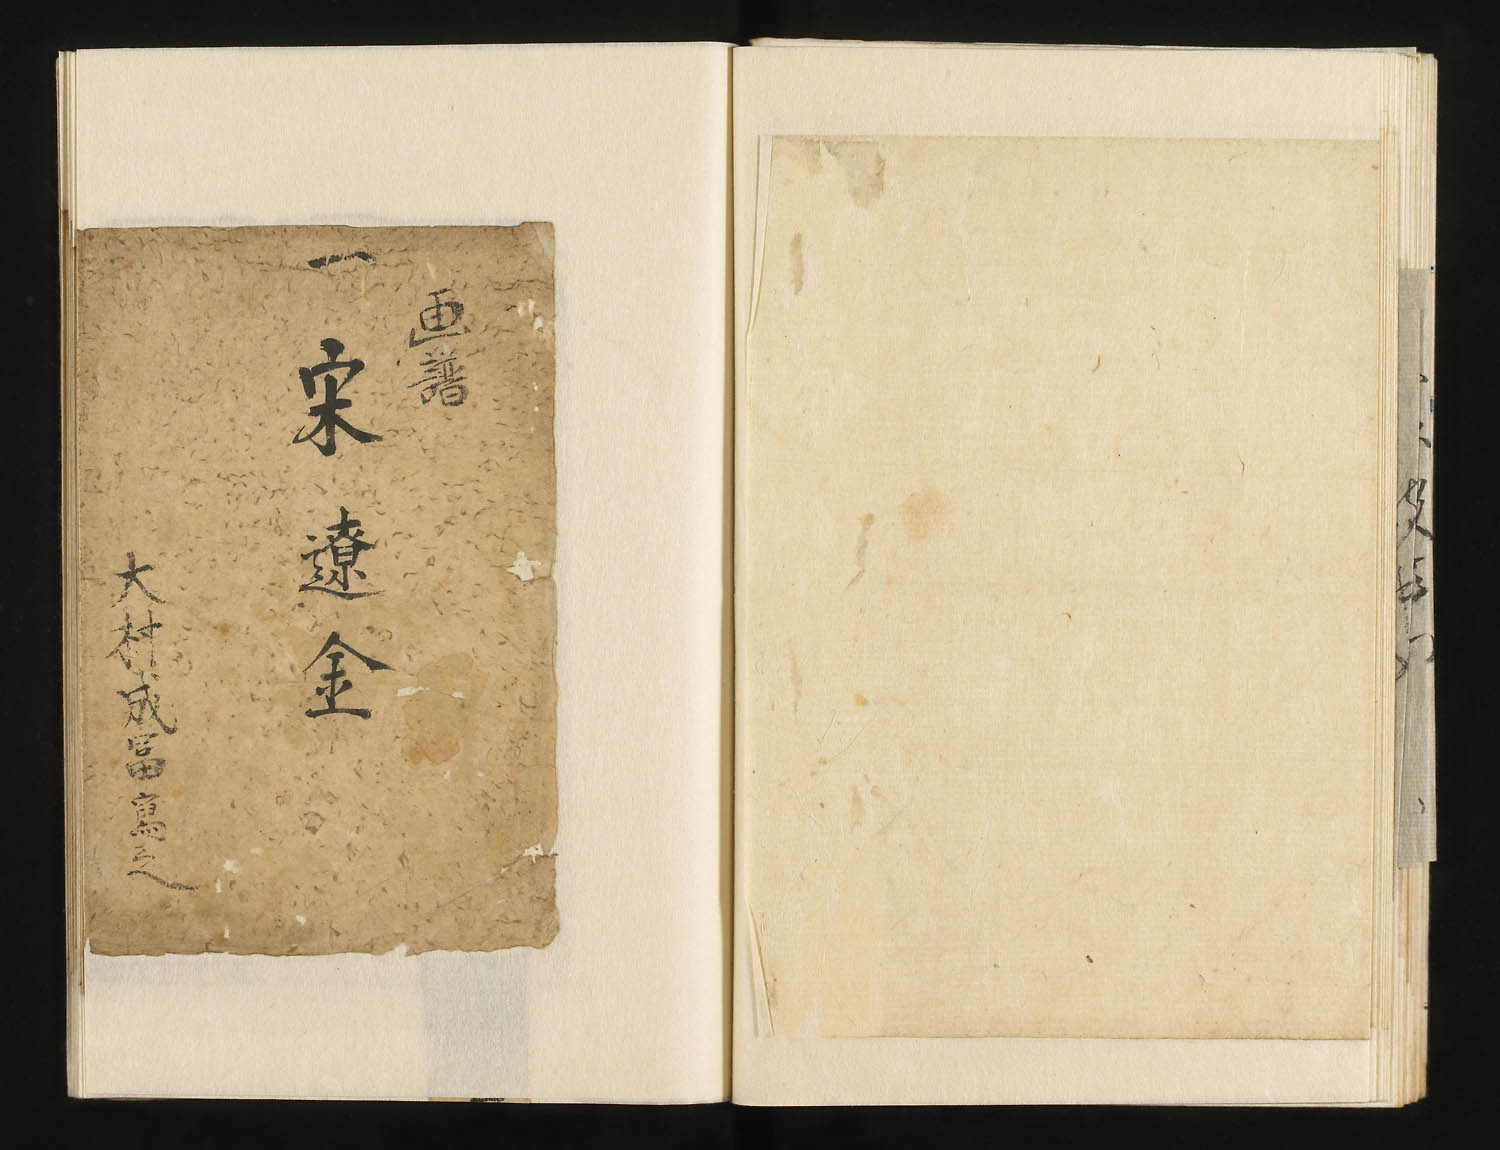 画譜
一 宋 遼 金
大村成冨寫之